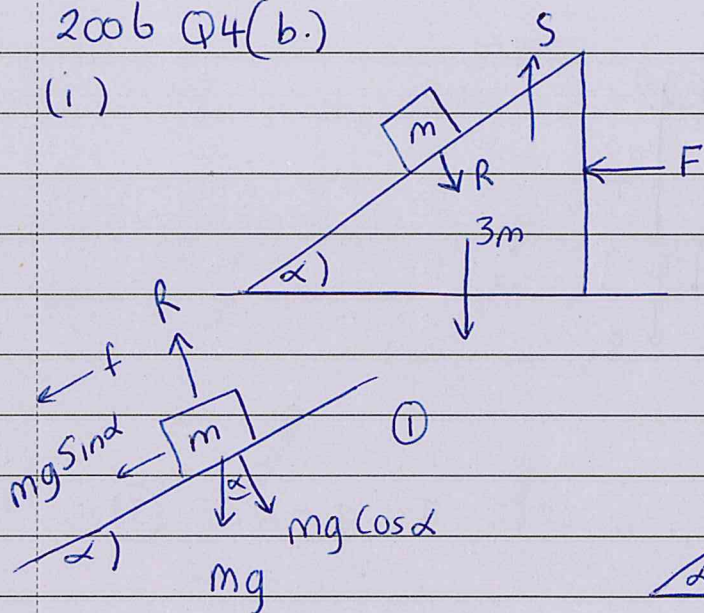 2006 Q4(b.)
(i)
S
m
R
F
3m
α)
R
f
m
mg Sinα
α
①
mg Cosα
α)
mg
α